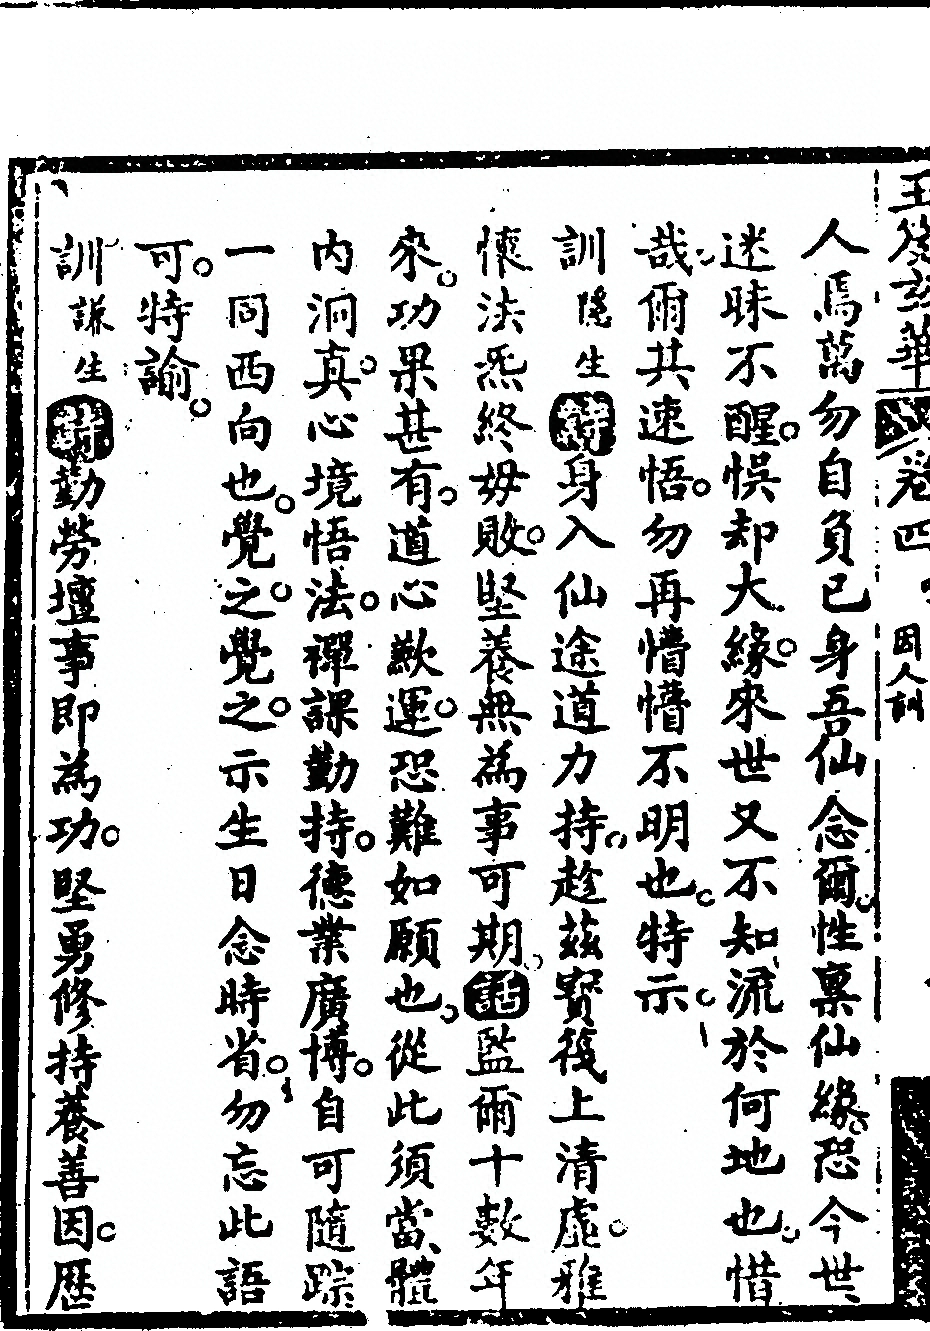 玉箋玄華 卷四 因人訓
人焉萬勿自負已身吾仙念爾性稟仙緣恐今世
迷昧不醒悞却大緣來世又不知流於何地也惜
哉爾其速悟勿再懵懵不明也特示
訓隱生 詩 身入仙途道力持趁兹寶筏上清虛雅
懷法炁終毋敗堅養無為事可期 話 監爾十數年
來功果甚有道心歉運恐難如願也從此須當體
內洞真心境悟法禪課勤持德業廣博自可隨踪
一同西向也覺之覺之示生日念時省勿忘此語
可特諭
訓謙生 詩 勤勞壇事即為功堅勇修持養善因歷